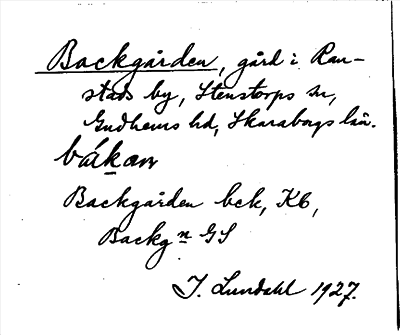 Backgården, gård i Ran-
stads by, Stenstorps sn,
Gudhems hd, Skaraborgs län.
bákan
Backgården bck, Kb,
Backgn GS
I. Lundahl 1927.